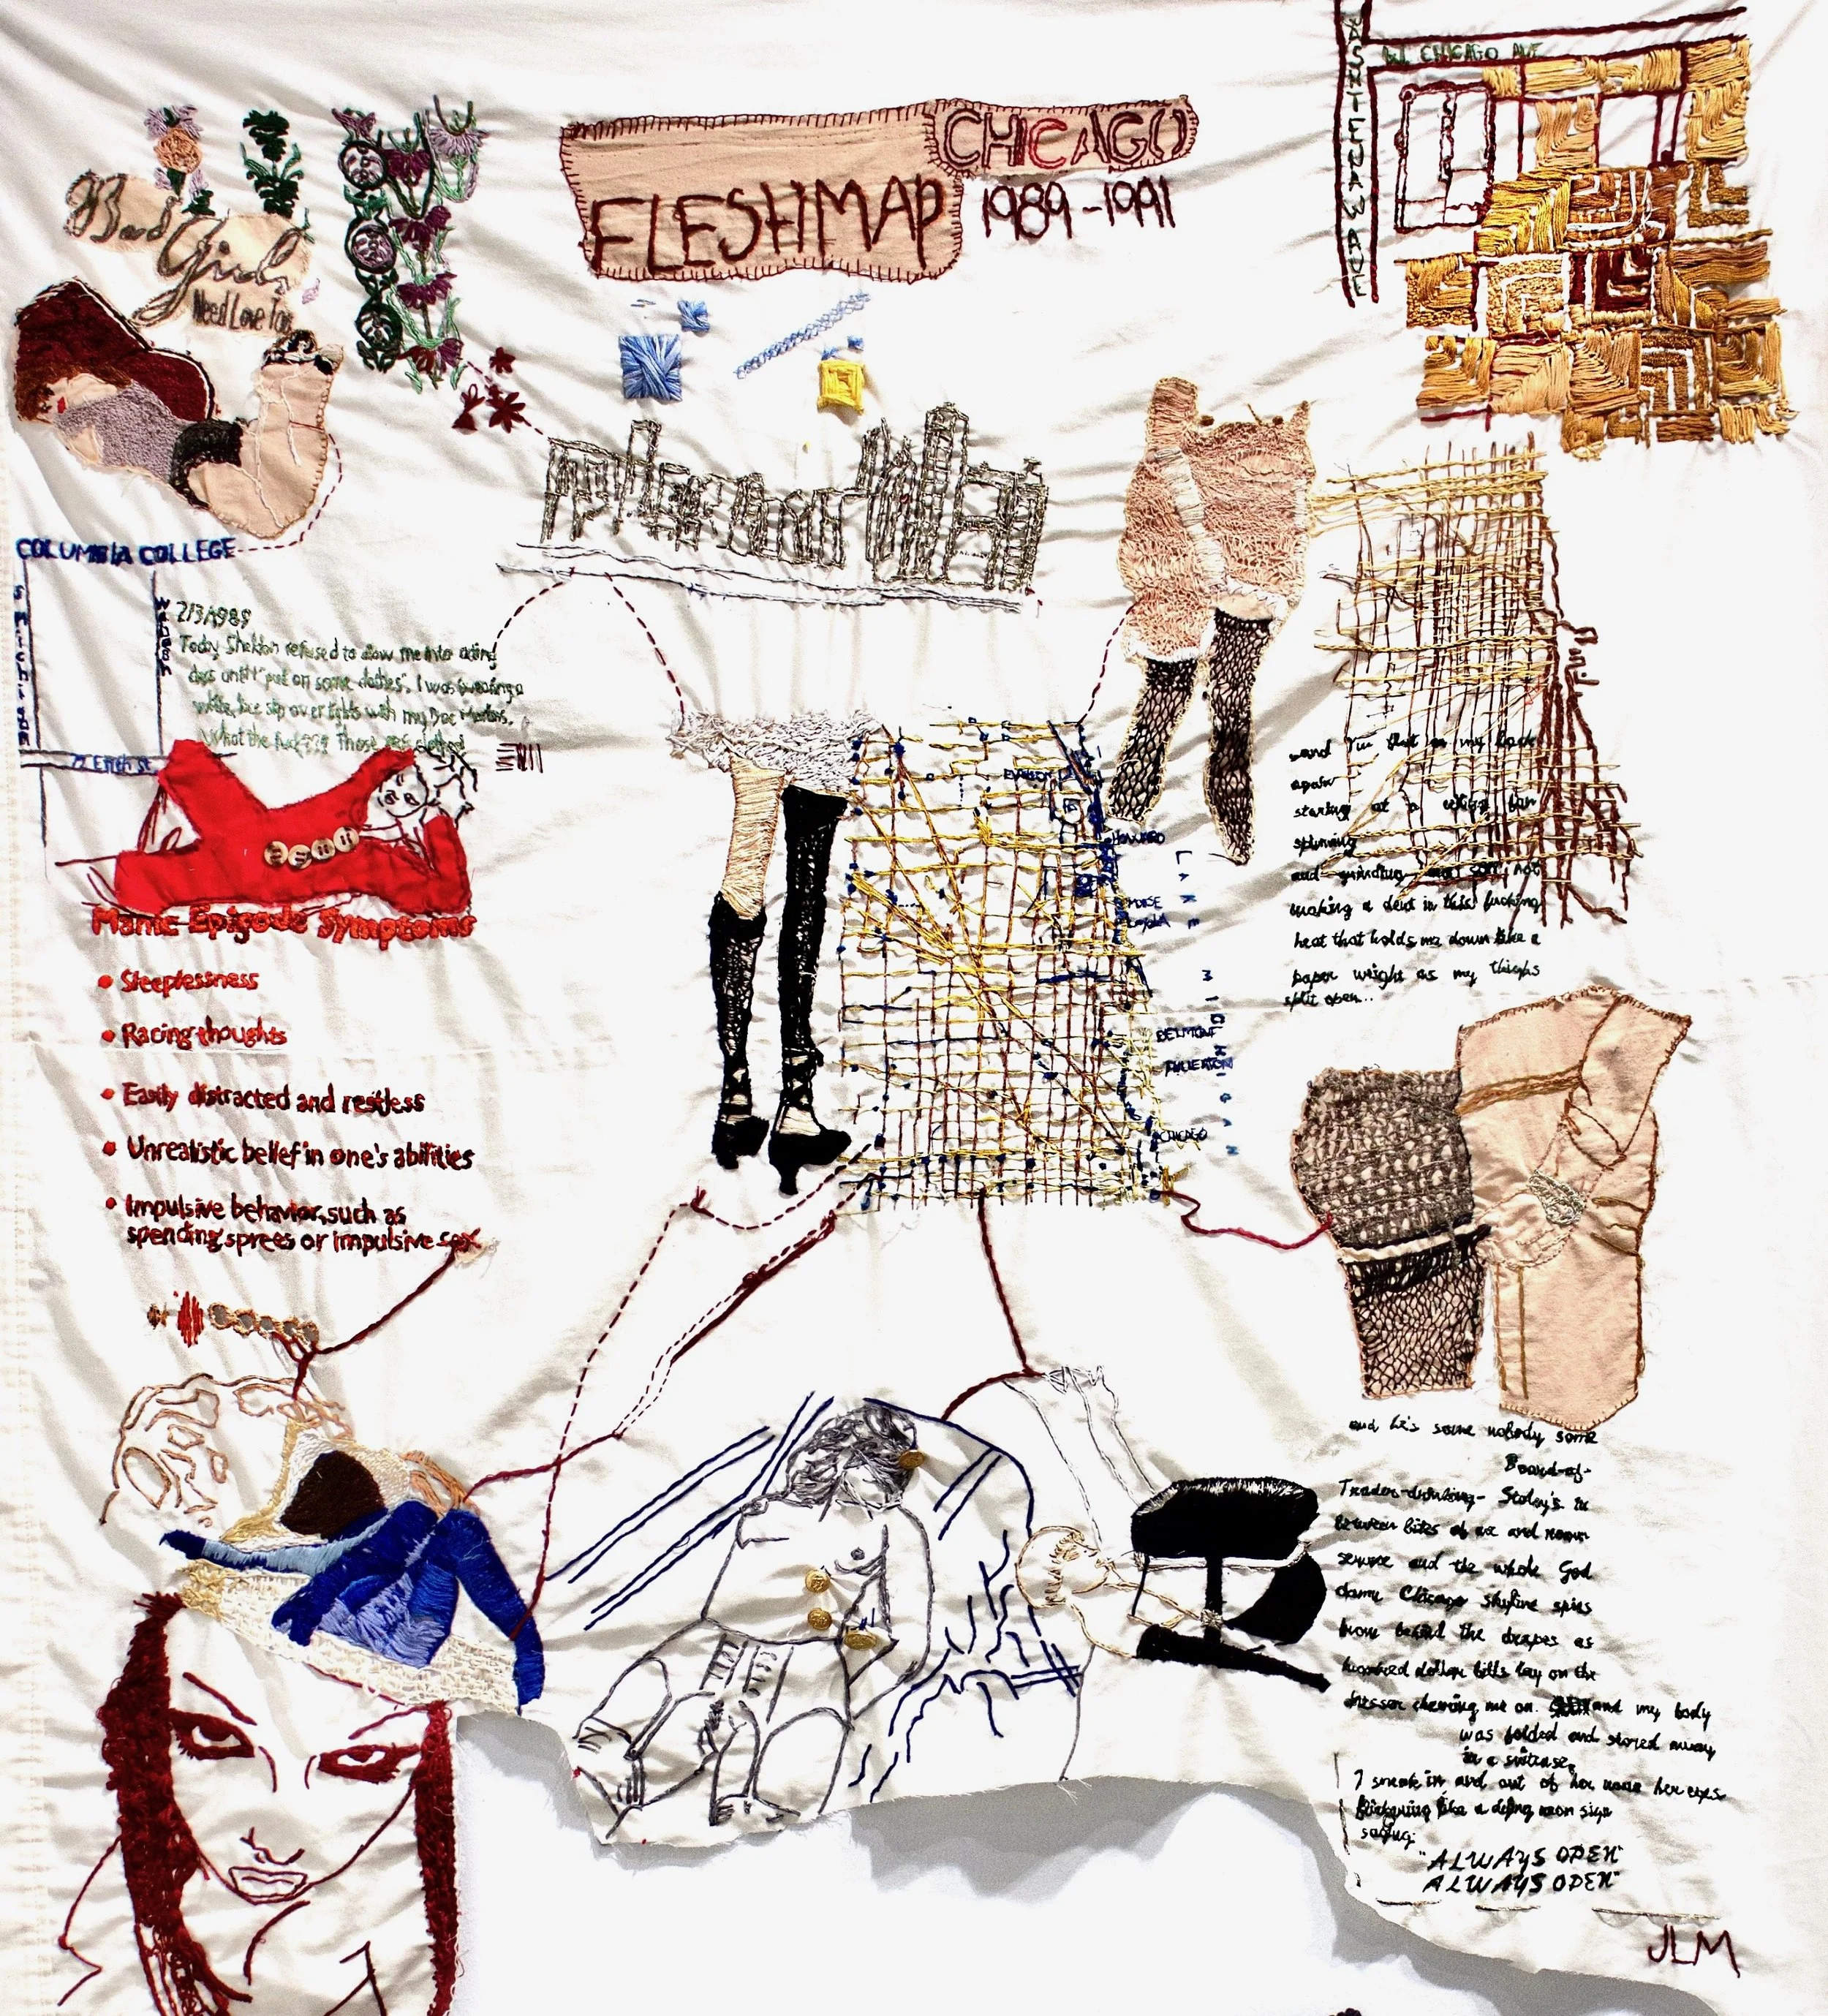 CHICAGO
FLESHMAP 1989-1991
W. CHICAGO AVE
Bad
Girls
Need Love Too
COLUMBIA COLLEGE
S MICHIGAN
WABASH
72 E 11th St.
2/3/1989
Today Sheldon refused to allow me into acting
class until I "put on some clothes". I was wearing a
white lace slip over tights with my Doc Martens.
What the fuck??? Those are clothes
Manic Episode Symptoms
• Sleeplessness
• Racing thoughts
• Easily distracted and restless
• Unrealistic belief in one's abilities
• Impulsive behavior, such as
spending sprees or impulsive sex
EVANSTON
HOWARD
MORSE
LOYOLA
BELMONT
FULLERTON
CHICAGO
LAKE MICHIGAN
and I'm flat on my back
again
staring at a ceiling fan
spinning
and grinding and still not
making a dent in this fucking
heat that holds me down like a
paper weight as my thighs
split open...
and he's some nobody some
Board-of-
Trader-drinking- Stoley's in
between bites of me and room
service and the whole God
damn Chicago skyline spins
from behind the drapes as
hundred dollar bills lay on the
dresser cheering me on. and my body
was folded and stored away
in a suitcase.
I sneak in and out of her room her eyes
flickering like a dying neon sign
saying:
"ALWAYS OPEN"
ALWAYS OPEN"
JLM